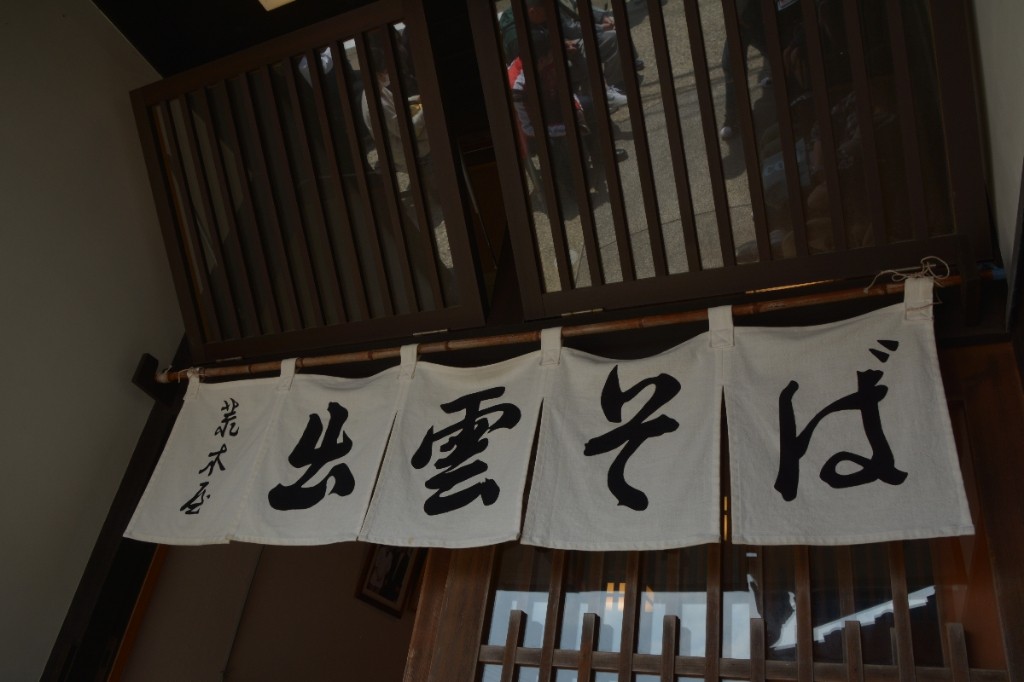 出雲そば
荒木屋